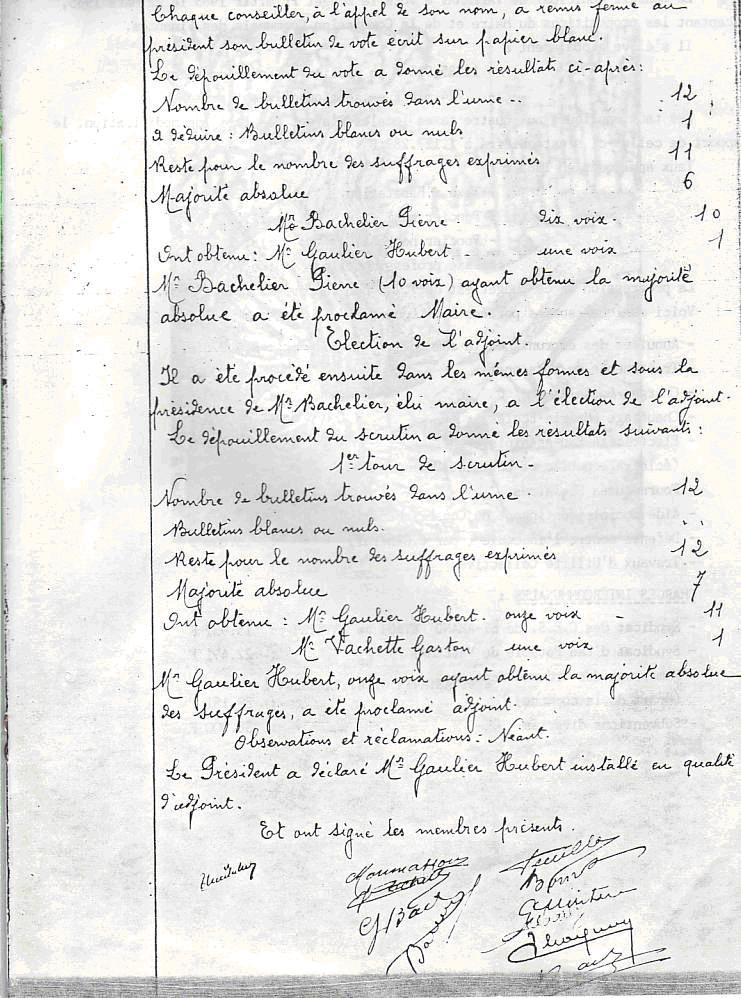 Chaque conseiller, à l'appel de son nom, a remis fermé au
président son bulletin de vote écrit sur papier blanc.
Le dépouillement du vote a donné les résultats ci-après:
Nombre de bulletins trouvés dans l'urne -- 12
à déduire: Bulletins blancs ou nuls 1
Reste pour le nombre des suffrages exprimés 11
Majorité absolue 6
Mr Bachelier Pierre. dix voix. 10
Ont obtenu: Mr Gaulier Hubert - une voix 1
Mr Bachelier Pierre (10 voix) ayant obtenu la majorité
absolue a été proclamé Maire.
Election de l'adjoint.
Il a été procédé ensuite dans les mêmes formes et sous la
présidence de Mr Bachelier, élu maire, a l'élection de l'adjoint.
Le dépouillement du scrutin a donné les résultats suivants:
1er tour de scrutin -
Nombre de bulletins trouvés dans l'urne. 12
Bulletins blancs ou nuls. . .
Reste pour le nombre des suffrages exprimés 12
Majorité absolue 7
Ont obtenu: Mr Gaulier Hubert. onze voix - 11
Mr Vachette Gaston une voix 1
Mr Gaulier Hubert, onze voix ayant obtenu la majorité absolue
des suffrages, a été proclamé adjoint.
Observations et réclamations: Néant.
Le Président a déclaré Mr Gaulier Hubert installé en qualité
d'adjoint.
Et ont signé les membres présents.